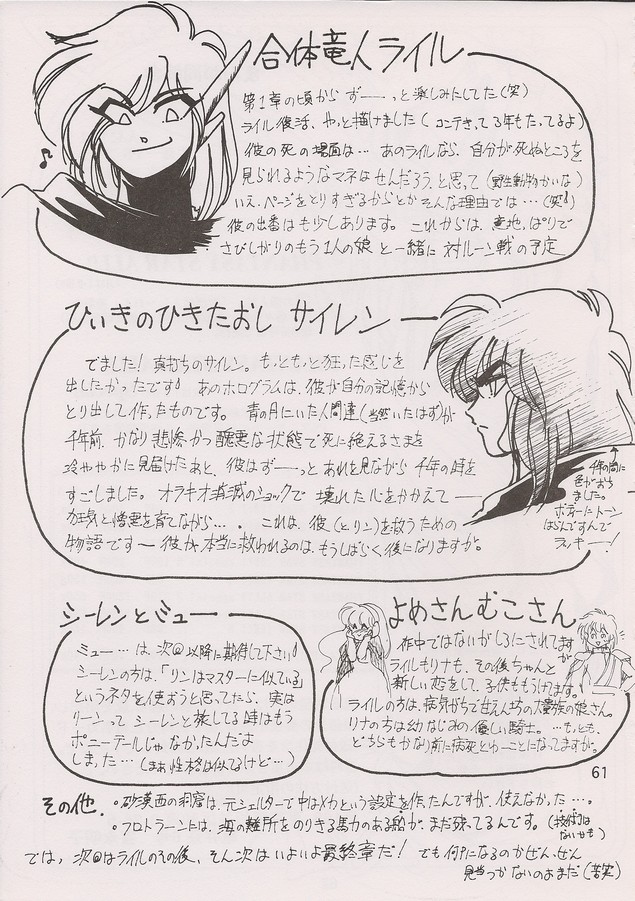 合体竜人ライル
第1章の頃から ずーーっと楽しみにしてた(笑)
ライル復活、やっと描けました( コンテきって3年もたってるよ)
彼の死の場面は… あのライルなら、自分が死ぬところを
見られるようなマネはせんだろう、と思って(野生動物かいな)
いえ、ページをとりすぎるからとかそんな理由では…(笑)
彼の出番はも少しあります。これからは、意地っぱりで
さびしがりのもう1人の娘 と一緒に 対ルーン戦の予定
ひいきのひきたおし サイレン
でました! 真打ちのサイレン。もっともっと狂った感じを
出したかったです! あのホログラムは、彼が自分の記憶から
とり出して作ったものです。 青の月にいた人間達(当然いたはず)が
千年前、かなり悲惨かつ醜悪な状態で死に絶えるさまを
冷ややかに見届けたあと、彼はずーーっとあれを見ながら千年の時を
すごしました。オラキオ消滅のショックで 壊れた心をかかえて——
狂気と憎悪を育てながら…。 これは、彼(とリン)を救うための
物語です〜 彼が本当に救われるのは、もうしばらく後になりますが。
千年の間に
色がおち
ました。
ボディーにトーン
はらんですんで
ラッキー—!
シーレンとミュー
ミュー…は、次回以降に期待して下さい!
シーレンの方は、「リンはマスターに似ている」
というネタを使おうと思ってたら、実は
リーンって シーレンと旅してる時はもう
ポニーテールじゃなかったんだよ
しまった…(まあ性格は似てるけど…)
よめさんむこさん
作中ではないがしろにされてますが
ライルもリナも、その後ちゃんと
新しい恋をして、子供ももうけます。
ライルの方は、病気がちで甘えん坊の大豪族の娘さん。
リナの方は幼なじみの優しい騎士。…もっとも、
どちらもかなり前に病死とゆーことになってますが。
61
その他.
・砂漠西の洞窟は、元シェルターで中はメカという設定を作ったんですが、使えなかった…。
・フロトラーンには、海の難所をのりきる馬力のある船が、まだ残ってるんです。(技術はないけど)
では、次回はライルのその後、そん次はいよいよ最終章だ! でも何Pになるのかぜんぜん
見当つかないのよまだ(苦笑)